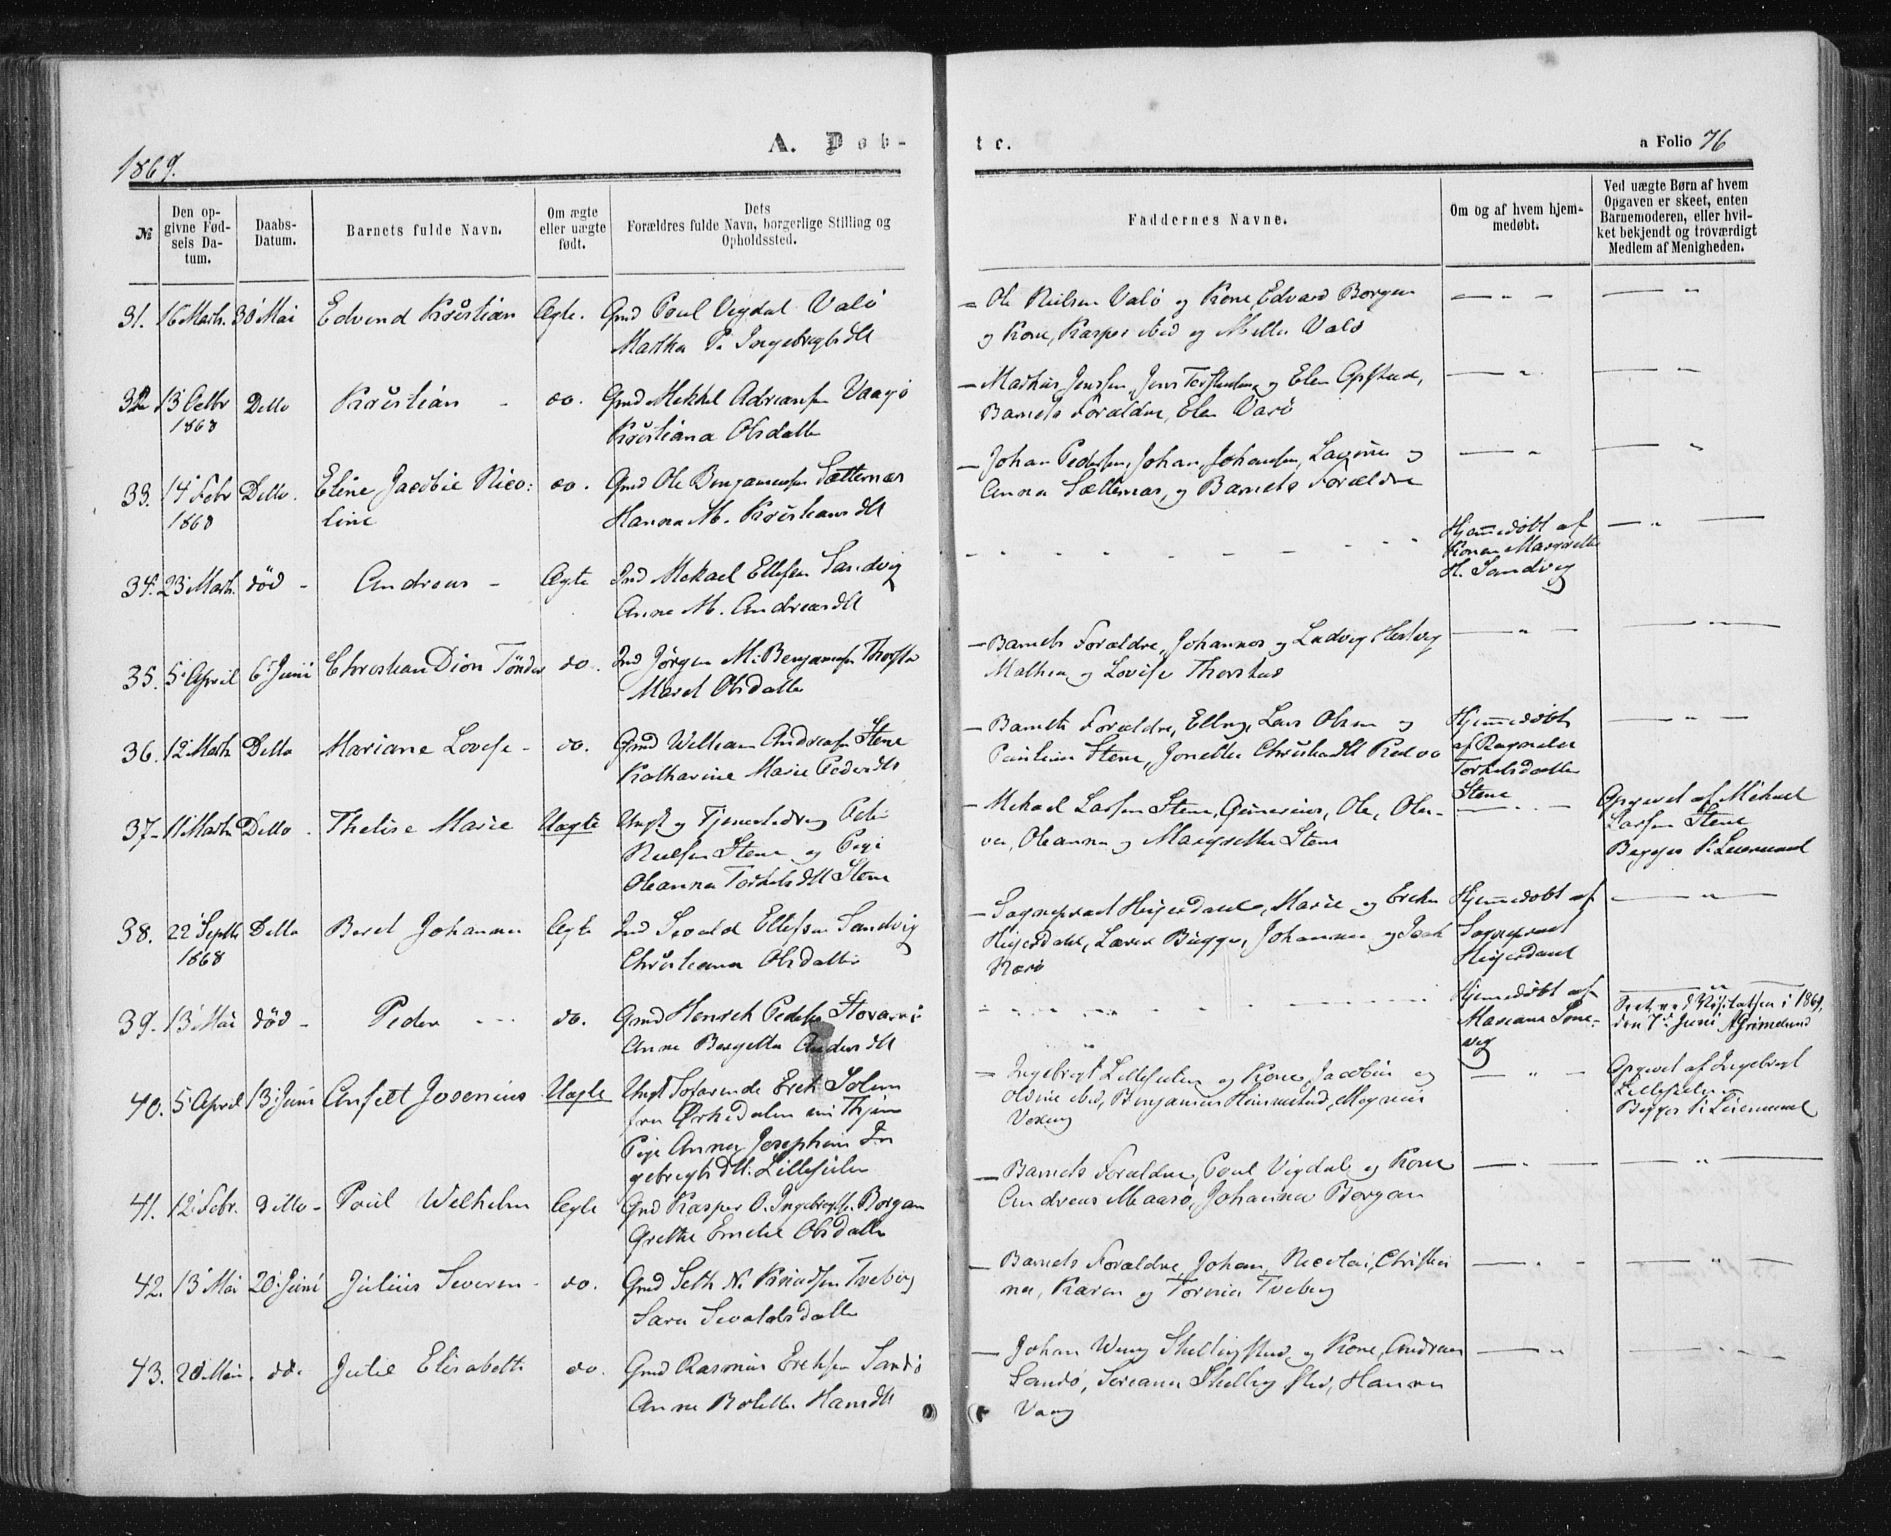 1869.
A. Døb-
te.
a Folio 76
№
Den op-
givne Fød-
sels Da-
tum.
Daabs-
Datum.
Barnets fulde Navn.
Om ægte
eller uægte
født.
Dets
Forældres fulde Navn, borgerlige Stilling og
Opholdssted.
Faddernes Navne.
Om og af hvem hjem-
medøbt.
Ved uægte Børn af hvem
Opgaven er skeet, enten
Barnemoderen, eller hvil-
ket bekjendt og troværdigt
Medlem af Menigheden.
31. 16 Marts. 30 Mai Edvend Kristian Ægte. Gmd Poul Vigdal Valø
Martha P. Ingebrigtsdtt
Ole Nielsen Valø og Kone, Edvard Borgan
og Kone, Kasper ibid og Mette Valø
32 13 Octbr Ditto Kristian do. Gmd Mekkel Adriansen Vaagø
1868
Kristiana Olsdatter
Markus Jensen, Jens Torstensen og Elen Opstad,
Barnets Forældre, Elen Varø
33. 14 Febr Ditto. Eline Jacobie Nico: do. Gmd Ole Benjaminsen Sætternæs
1868
line
Hanna M. Kristiansdtt
Johan Pedersen, Johan Johansen, Lavine og
Anna Sætternæs, og Barnets Forældre
34. 23 Marts. død - Andreas - Ægte Ind Mekael Ellefsen Sandvig
Anne M. Andreasdtt
Hjemmedøbt af
Konen Margrethe
H. Sandvig
35. 5 April 6 Juni Christian Dion Tønder do. Ind Jørgen M. Benjaminsen
Maret Olsdatter
Barnets Forældre, Johannes og Ludvig Hestvig
Mathea og Lovise Thorstad
36. 12 Marts Ditto Mariane Lovise - do. Gmd William Andreasen Stene
Katharine Marie Pedersdtt
Barnets Forældre, Elling, Lars Olsen og
Pauline Stene, Jonette Christiansdtt
Hjemmedøbt
af Ragnilda
Torkelsdatter
Stene
37. 11 Marts Ditto. Theline Marie Uægte Ungk og Tjenestedreng Peder
Nielsen Stene og Pige
Oleanna Torkelsdtt Stene
Mikael Larsen Stene, Gunerius, Ole, Ole-
va, Oleanna og Margrethe Stene
Opgivet af Mikael
Larsen Stene
Begges 1 Leiermaal
38. 22 Septbr Ditto Beret Johanna Ægte Ind Sevald Ellefsen Sandvig
1868
Christiana Olsdatter
Sognepræst Heijerdahl, Marie og Erika
Heijerdahl, Lærer Bugge, Johanna og Isak
Hjemmedøbt af
Sognepræst
Heijerdahl
39. 13 Mai død - Peder - do. Gmd Henrik Pedersen
Anne Bergitta Andersdtt
Hjemmedøbt af
Mariane Sone-
vig
Seet ved Visitatsen i 1869,
den 7de Juni A Grimelund
40. 5 April 13 Juni Anfelt Josenius Uægte Ungk Søfarende Erik Solem
fra Ørkedalen m. Thjen
Pige Anna Josephine In
gebrigtsdtt. Lillefiilen
Ingebrigt Lillefiilen og Kone, Jacobine og
Olvine ibid, Benjamin Heimstad, Magnus
Opgivet af Ingebrigt
Lillefiilen
Begges 1 Leiermaal
41. 12 Febr. Ditto - Poul Welhelm Ægte Gmd Kasper O. Ingebrigtsen Borgan
Grethe Emelie Olsdatter
Barnets Forældre, Poul Vigdal og Kone
Andreas Maasø, Johanna Borgan
42. 13 Mai 20 Juni Julius Severin - do. Gmd Seth N. Knudsen Tveberg
Sara Sevaldsdatter
Barnets Forældre, Johan, Nicolai, Christia
na, Karen og Torina Tveberg
43. 20 Mai. do. Julie Elisabeth do. Gmd Rasmus Eriksen Sandø
Anne Bolette Hansdtt
Johan Wang Skellingsted og Kone, Andreas
Sandø, Soreana Skellingsted, Hanna
Vang